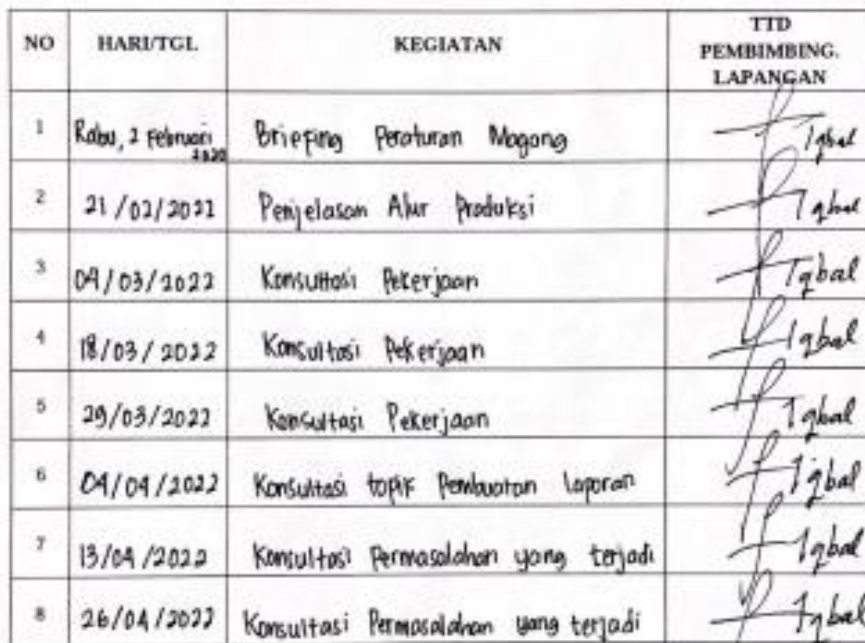 NO HARI/TGL KEGIATAN TTD PEMBIMBING. LAPANGAN
1 Rabu, 2 Februari 2020 Briefing Peraturan Magang Iqbal
2 21/02/2022 Penjelasan Alur Produksi Iqbal
3 04/03/2022 Konsultasi Pekerjaan Iqbal
4 18/03/2022 Konsultasi Pekerjaan Iqbal
5 29/03/2022 Konsultasi Pekerjaan Iqbal
6 04/04/2022 Konsultasi topik Pembuatan laporan Iqbal
7 13/04/2022 Konsultasi Permasalahan yang terjadi Iqbal
8 26/04/2022 Konsultasi Permasalahan yang terjadi Iqbal